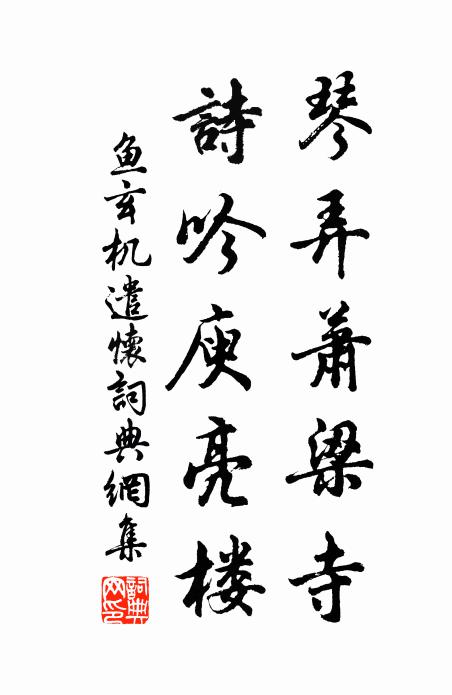 琴弄萧梁寺
詩吟庾亮楼
鱼玄机遣懷詞典網集
詞典網印